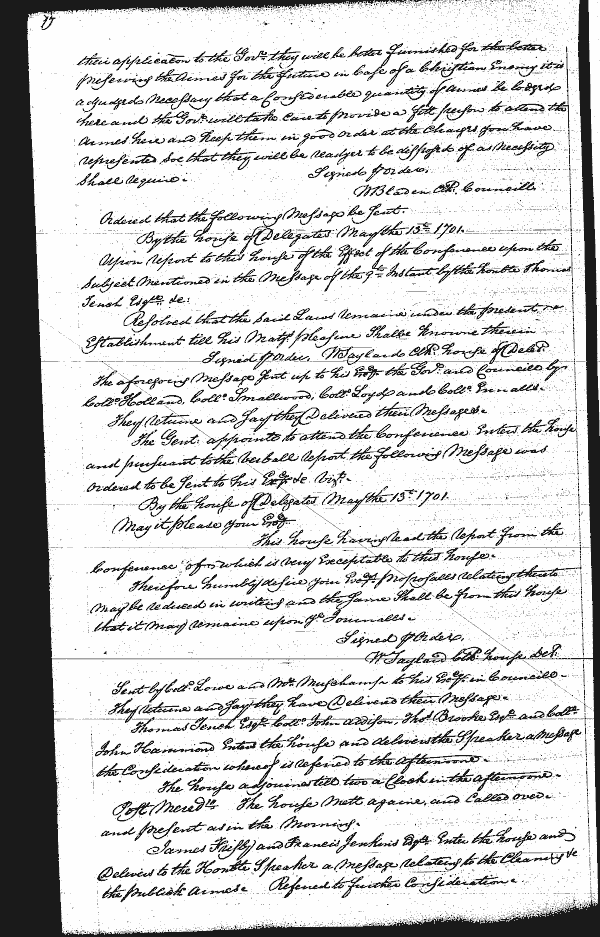 their application to the Govr. they will be better furnished for the better
preserving the Armes for the future in Case of a Christian Enemy it is
adjudged necessary that a Considerable quantity of Armes be lodged
here and the Govr. will take Care to provide a fitt person to attend the
Armes here and keep them in good order at the Charges you have
represented soe that they will be readyer to be disposed of as necessity
Shall require.
Signed p order.
W Bladen Clk. Councill.
Ordered that the following Message be Sent.
By the house of Delegates May the 15th. 1701.
Upon report to this house of the Effect of the Conference upon the
Subject Mentioned in the Message of the 9th Instant by the honble Thomas
Tench Esqr. &c:
Resolved that the said Laws remaine under the present
Establishment till his Matys. pleasure Shalbe knowne therein
Signed p order. W Taylard Clk. house of Deles.
The aforegoing Message Sent up to his Exncy. the Govr. and Councill by
Coll. Holland, Coll. Smallwood, Coll. Loyd and Coll. Ennalls.
They returne and Say they Delivered their Messages.
The Gent: appointed to attend the Conference Enters the house
and pursuant to the verball report the following Message was
ordered to be Sent to his Exncy. &c. Vizt.
By the house of Delegates May the 15th 1701.
May it please your Exncy.
This house having read the report from the
Conference of which is very Exceptable to this house.
Therefore humbly desire your Exncys. proposalls relating thereto
may be reduced in writeing and the Same Shall be from this house
that it may remaine upon ye. Journalls.
Signed p Order.
W Taylard Clk. house Del.
Sent by Coll. Lowe and Mr. Muschamp to his Exncy. in Councill.
They returne and Say they have Delivered their Message.
Thomas Tench Esqr. Coll. John Addison, Thos. Brooke Esqr. and Coll.
John Hammond Enters the house and delivers the Speaker a Message
the Consideration whereof is referred to the afternoone.
The house adjournes till two a Clock in the afternoone.
Post Meredie. The house Mett againe, and Called over.
and present as in the Morning.
James Frisby and Francis Jenkins Esqrs. Enter the house and
Delivers to the Honble Speaker a Message relating to the Cleaning &c
the publick Armes. Referred to further Consideration.